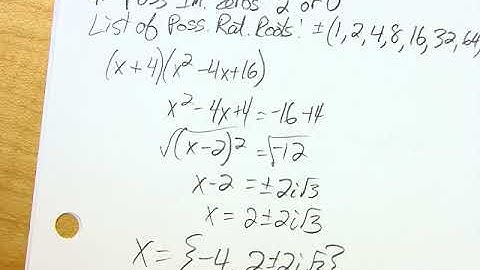 # Poss Im. Zeros 2 or 0
List of Poss. Rat. Roots: ±(1,2,4,8,16,32,64,
(x+4)(x²-4x+16)
x²-4x+4=-16+4
√(x-2)²=√-12
x-2=±2i√3
x=2±2i√3
x={-4, 2±2i√3}